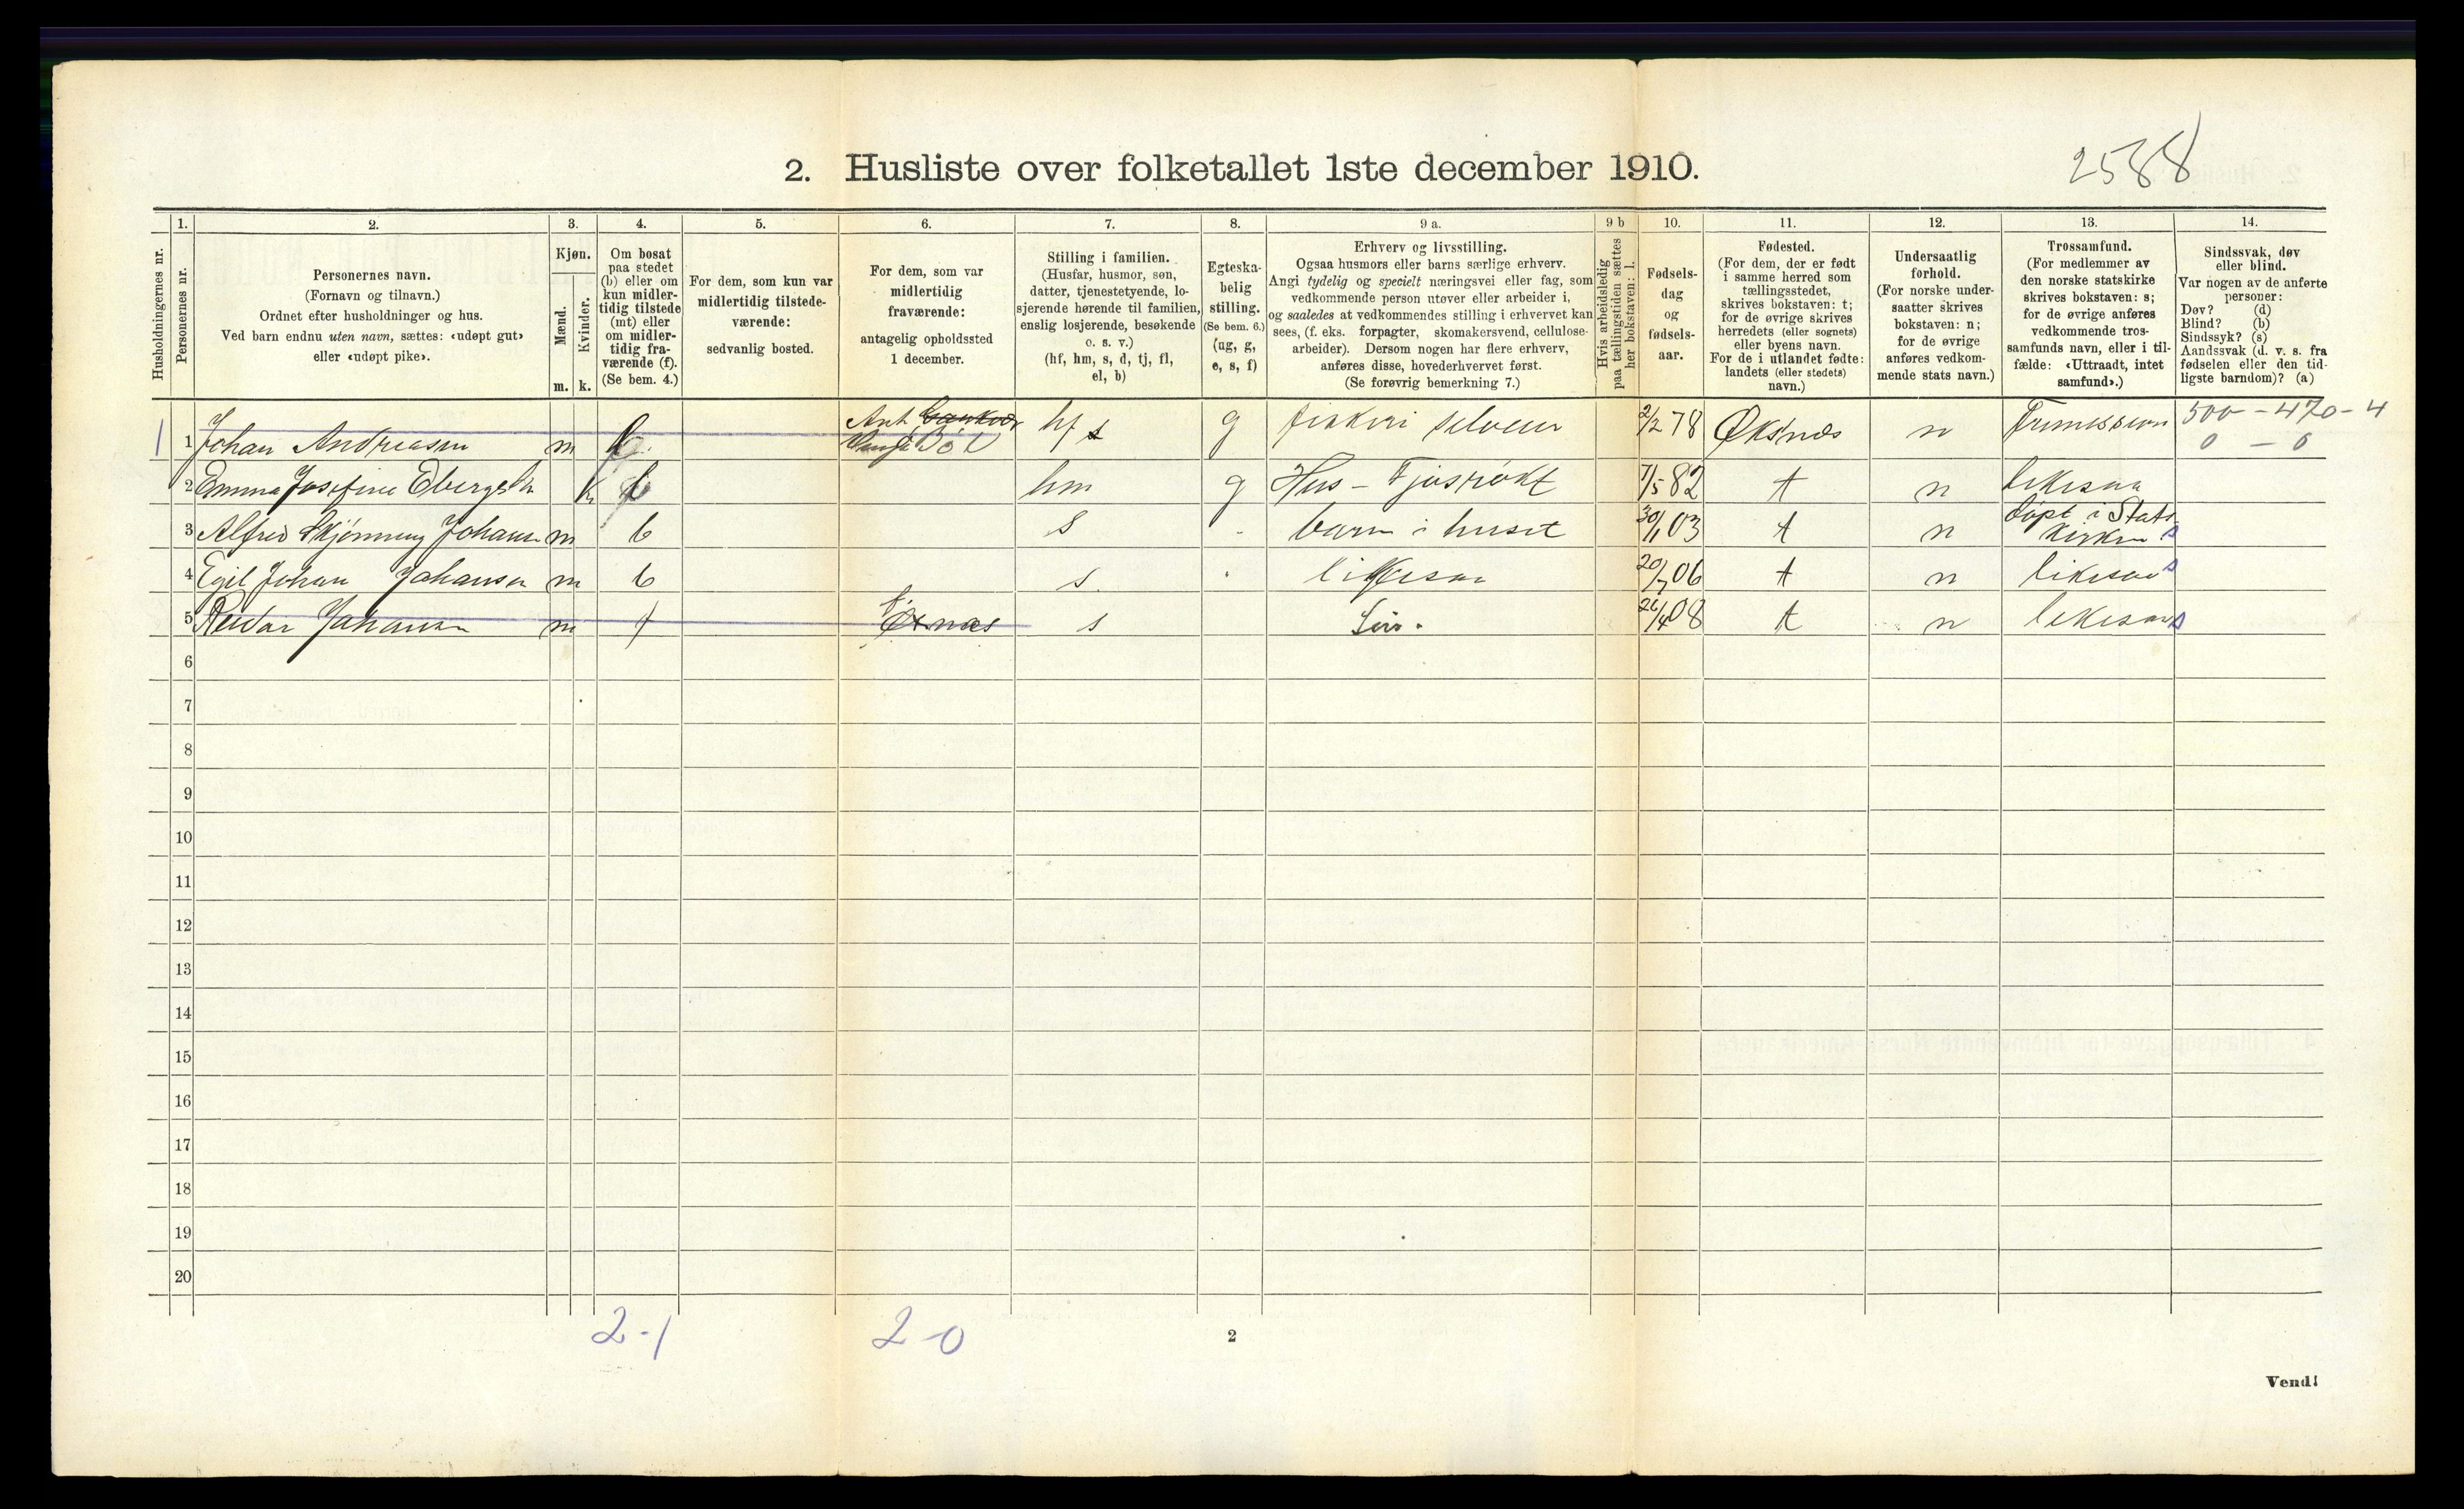 2588
2. Husliste over folketallet 1ste december 1910.
Husholdningernes nr.
1.
Personernes nr.
2.
Personernes navn.
(Fornavn og tilnavn.)
Ordnet efter husholdninger og hus.
Ved barn endnu uten navn, sættes: «udøpt gut»
eller «udøpt pike».
3.
Kjøn.
Mænd.
Kvinder.
m. k.
4.
Om bosat
paa stedet
(b) eller om
kun midler-
tidig tilstede
(mt) eller
om midler-
tidig fra-
værende (f).
(Se bem. 4.)
5.
For dem, som kun var
midlertidig tilstede-
værende:
sedvanlig bosted.
6.
For dem, som var
midlertidig
fraværende:
antagelig opholdssted
1 december.
7.
Stilling i familien.
(Husfar, husmor, søn,
datter, tjenestetyende, lo-
sjerende hørende til familien,
enslig losjerende, besøkende
o. s. v.)
(hf, hm, s, d, tj, fl,
el, b)
8.
Egteska-
belig
stilling.
(Se bem. 6.)
(ug, g,
e, s, f)
9 a.
Erhverv og livsstilling.
Ogsaa husmors eller barns særlige erhverv.
Angi tydelig og specielt næringsvei eller fag, som
vedkommende person utøver eller arbeider i,
og saaledes at vedkommendes stilling i erhvervet kan
sees, (f. eks. forpagter, skomakersvend, cellulose-
arbeider). Dersom nogen har flere erhverv,
anføres disse, hovederhvervet først.
(Se forøvrig bemerkning 7.)
9 b
Hvis arbeidsledig
paa tællingstiden sættes
her bokstaven: l.
10.
Fødsels-
dag
og
fødsels-
aar.
11.
Fødested.
(For dem, der er født
i samme herred som
tællingsstedet,
skrives bokstaven: t;
for de øvrige skrives
herredets (eller sognets)
eller byens navn.
For de i utlandet fødte:
landets (eller stedets)
navn.)
12.
Undersaatlig
forhold.
(For norske under-
saatter skrives
bokstaven: n;
for de øvrige
anføres vedkom-
mende stats navn.)
13.
Trossamfund.
(For medlemmer av
den norske statskirke
skrives bokstaven: s;
for de øvrige anføres
vedkommende tros-
samfunds navn, eller i til-
fælde: «Uttraadt, intet
samfund».)
14.
Sindssvak, døv
eller blind.
Var nogen av de anførte
personer:
Døv? (d)
Blind? (b)
Sindssyk? (s)
Aandssvak (d. v. s. fra
fødselen eller den tid-
ligste barndom)? (a)
1 1 Johan Andreasen m hf g fiskeri selveier 2/2 78 Øksnæs n 500-470-4
0 - 0
2 Emma Josefine k b hm g Hus- Fjøsrøkt 7/5 82 t n likesaa
3 Alfred Skjønning Johansen m b s - barn i huset 30/1 03 t n Døpt i Stats
Kirken s
4 Egil Johan Johansen m b s likesaa 20/7 06 t n likesaa s
5 Reidar Johansen m f s 26/4 08 t n likesaa s
6
7
8
9
10
11
12
13
14
15
16
17
18
19
20
2-1 2-0
2
Vend!